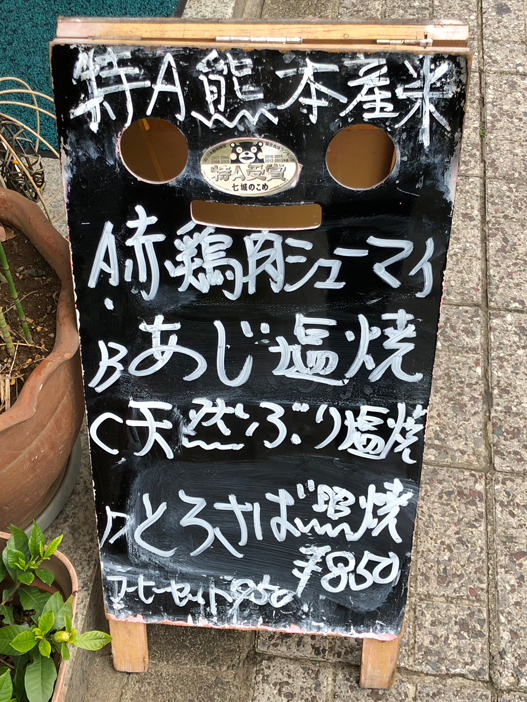 特A熊本産米
特A受賞
七城のこめ
A赤鶏肉シューマイ
Bあじ塩焼
C天然ぶり塩焼
とろさば照焼
¥850
コーヒーセット950